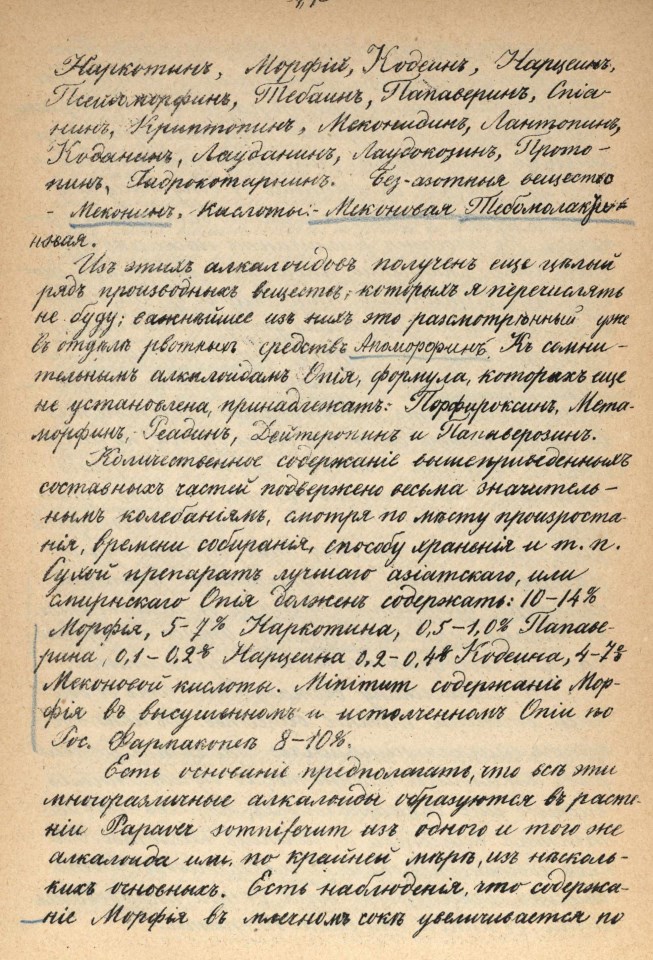 Наркотинъ, Морфій, Кодеинъ, Нарцеинъ,
Псейдоморфинъ, Тебаинъ, Папаверинъ, Опіа-
нинъ, Криптопинъ, Меконидинъ, Лантопинъ,
Коданинъ, Лауданинъ, Лаудокозинъ, Прото-
пинъ, Гидрокотарнинъ. Без-азотныя вещества
- Меконинъ. Кислоты: - Меконовая Тебомолакто-
новая.
Изъ этихъ алкалоидовъ полученъ еще цѣлый
рядъ производныхъ веществъ, которыхъ я перечислять
не буду; важнѣйшее изъ нихъ это разсмотрѣнный уже
въ отдѣлѣ рвотныхъ средствъ Апоморфинъ. Къ сомни-
тельнымъ алкалоидамъ Опія, формула, которыхъ еще
не установлена, принадлежатъ: Порфироксинъ, Мета-
морфинъ, Реадинъ, Дейтеропинъ и Папаверозинъ.
Количественное содержаніе вышеприведенныхъ
составныхъ частей подвержено весьма значитель-
нымъ колебаніямъ, смотря по мѣсту произроста-
нія, времени собиранія, способу храненія и т. п.
Сухой препаратъ лучшаго азіатскаго, или
смирнскаго Опія долженъ содержать: 10-14%
Морфія, 5-7% Наркотина, 0,5-1,0% Папаве-
рина, 0,1-0,2% Нарцеина 0,2-0,4% Кодеина, 4-7%
Меконовой кислоты. Minimum содержаніе Мор-
фія въ высушенномъ и истолченномъ Опіи по
Рос. Фармакопеѣ 8-10%.
Есть основаніе предполагать, что всѣ эти
многоразличные алкалоиды образуются въ расте-
ніи Papaver somniferum изъ одного и того же
алкалоида или, по крайней мѣрѣ, изъ нѣсколь-
кихъ основныхъ. Есть наблюденія, что содержа-
ніе Морфія въ млечномъ сокѣ увеличивается по